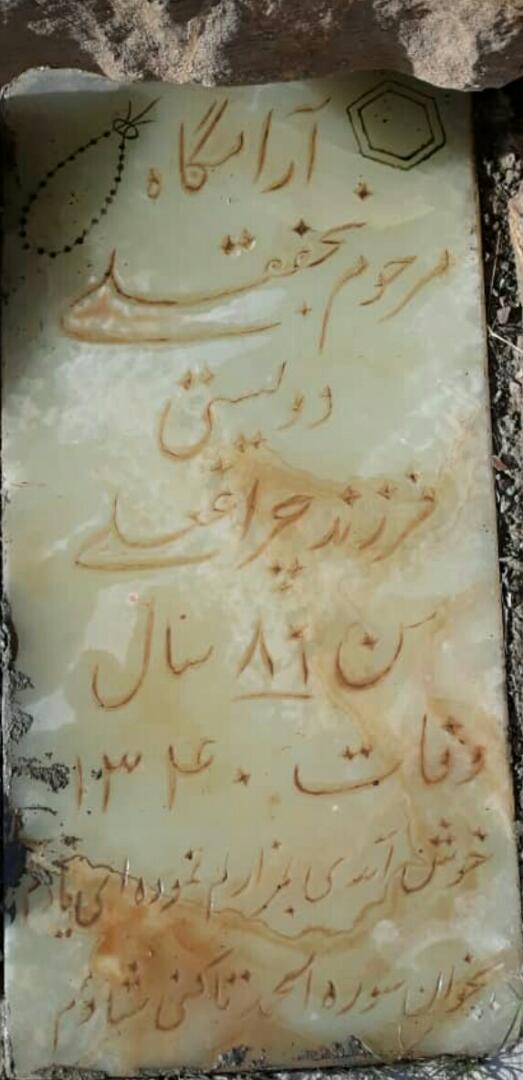 آرامگاه
مرحوم نجفقلی
دولیستی
فرزند چراغعلی
سن ۸۹ سال
وفات ۱۳۴۰
خوش آمدی بمزارم نموده ای یادم
بخوان سوره الحمد تا کنی شادم